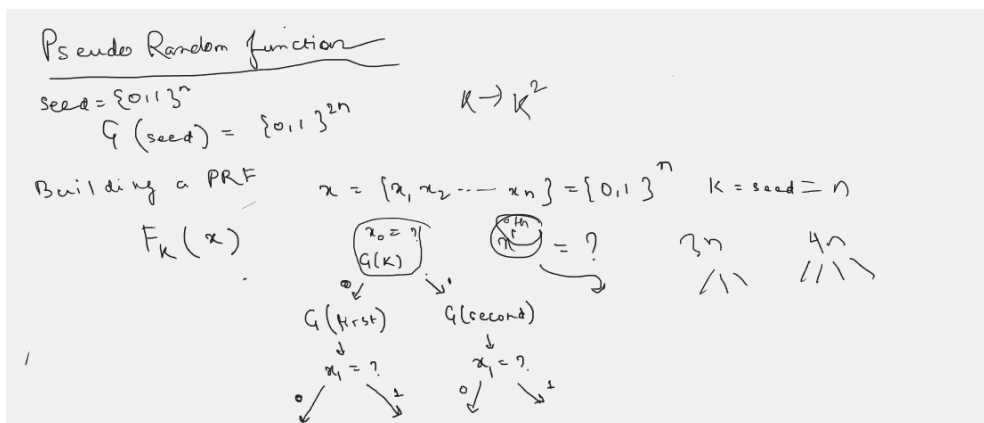 Pseudo Random function
seed = {0,1}ⁿ
G (seed) = {0,1}²ⁿ
K → K²
Building a PRF
x = {x₁ x₂ ---- xn} = {0,1}ⁿ K = seed = n
Fₖ(x)
x₀ = ?
G(K)
= ?
3n
4n
0
1
G(first)
G(second)
x₁ = ?
x₁ = ?
0
1
0
1